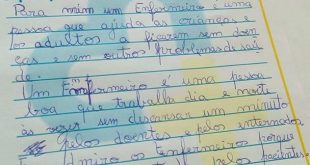 Para mim um Enfermeiro é uma
pessoa que ajuda as crianças e
os adultos a ficarem sem doen
ças e sem outros problemas de saú
de.
Um Enfermeiro é uma pessoa
boa que trabalha dia e noite
às vezes sem descansar um minuto
pelos doentes e pelos internados
Admiro os Enfermeiro porque
pelos pacientes